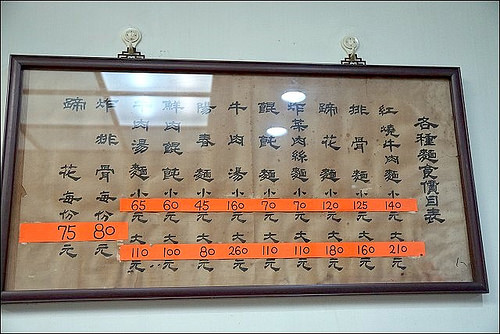 各種麵食價目表
紅燒牛肉麵 小140元 大210元
排骨麵 小125元 大160元
蹄花麵 小120元 大180元
炸菜肉絲麵 小70元 大110元
餛飩麵 小70元 大110元
牛肉湯 小160元 大260元
陽春麵 小45元 大80元
鮮肉餛飩 小60元 大100元
牛肉湯麵 小65元 大110元
炸排骨 每份80元
蹄花 每份75元